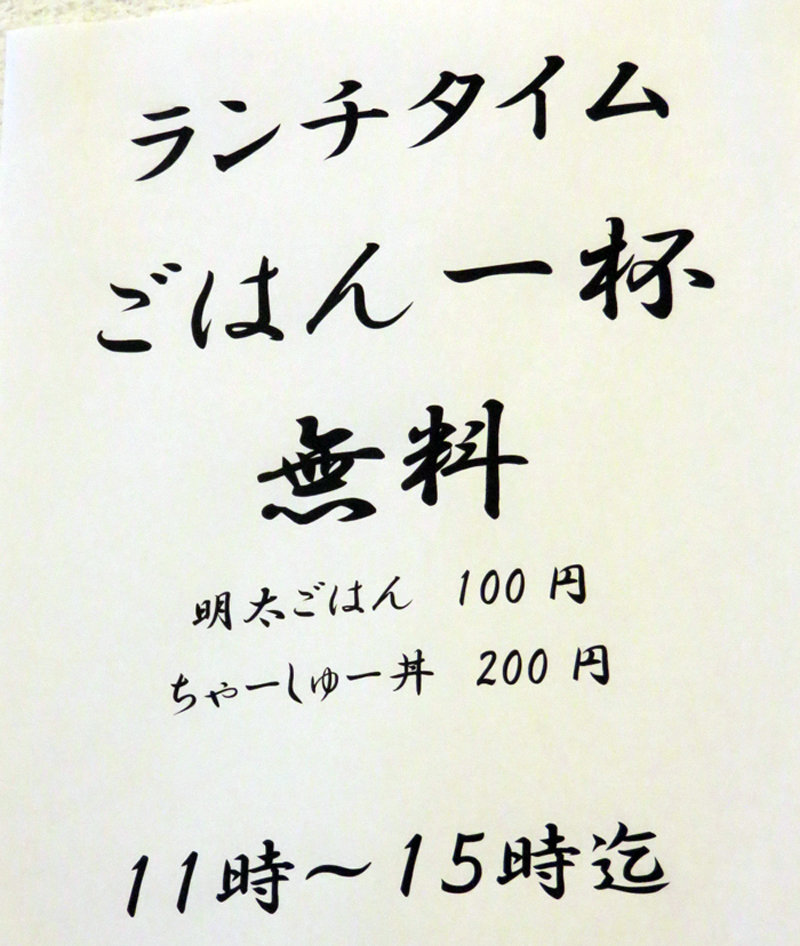 ランチタイム
ごはん一杯
無料
明太ごはん 100円
ちゃーしゅー丼 200円
11時～15時迄